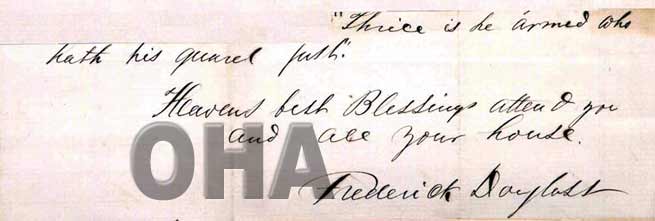 "Thrice is he armed who
hath his quarel just".
Heavens best Blessings attend you
and all your house.
OHA
Frederick Douglass